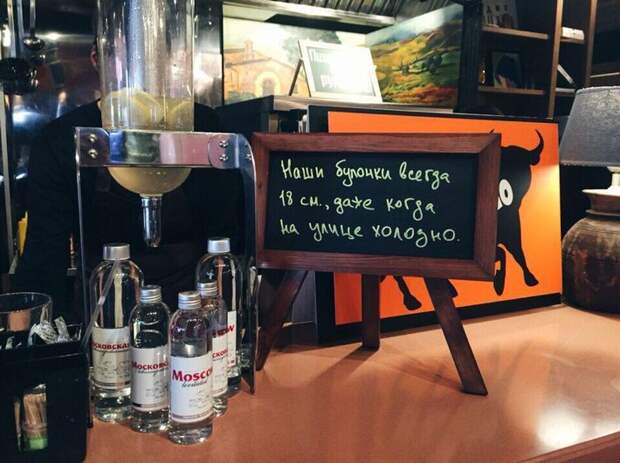 Наши булочки всегда
18 см., даже когда
на улице холодно.
МОСКОВСКАЯ
МОСКОВСКАЯ
Moscow